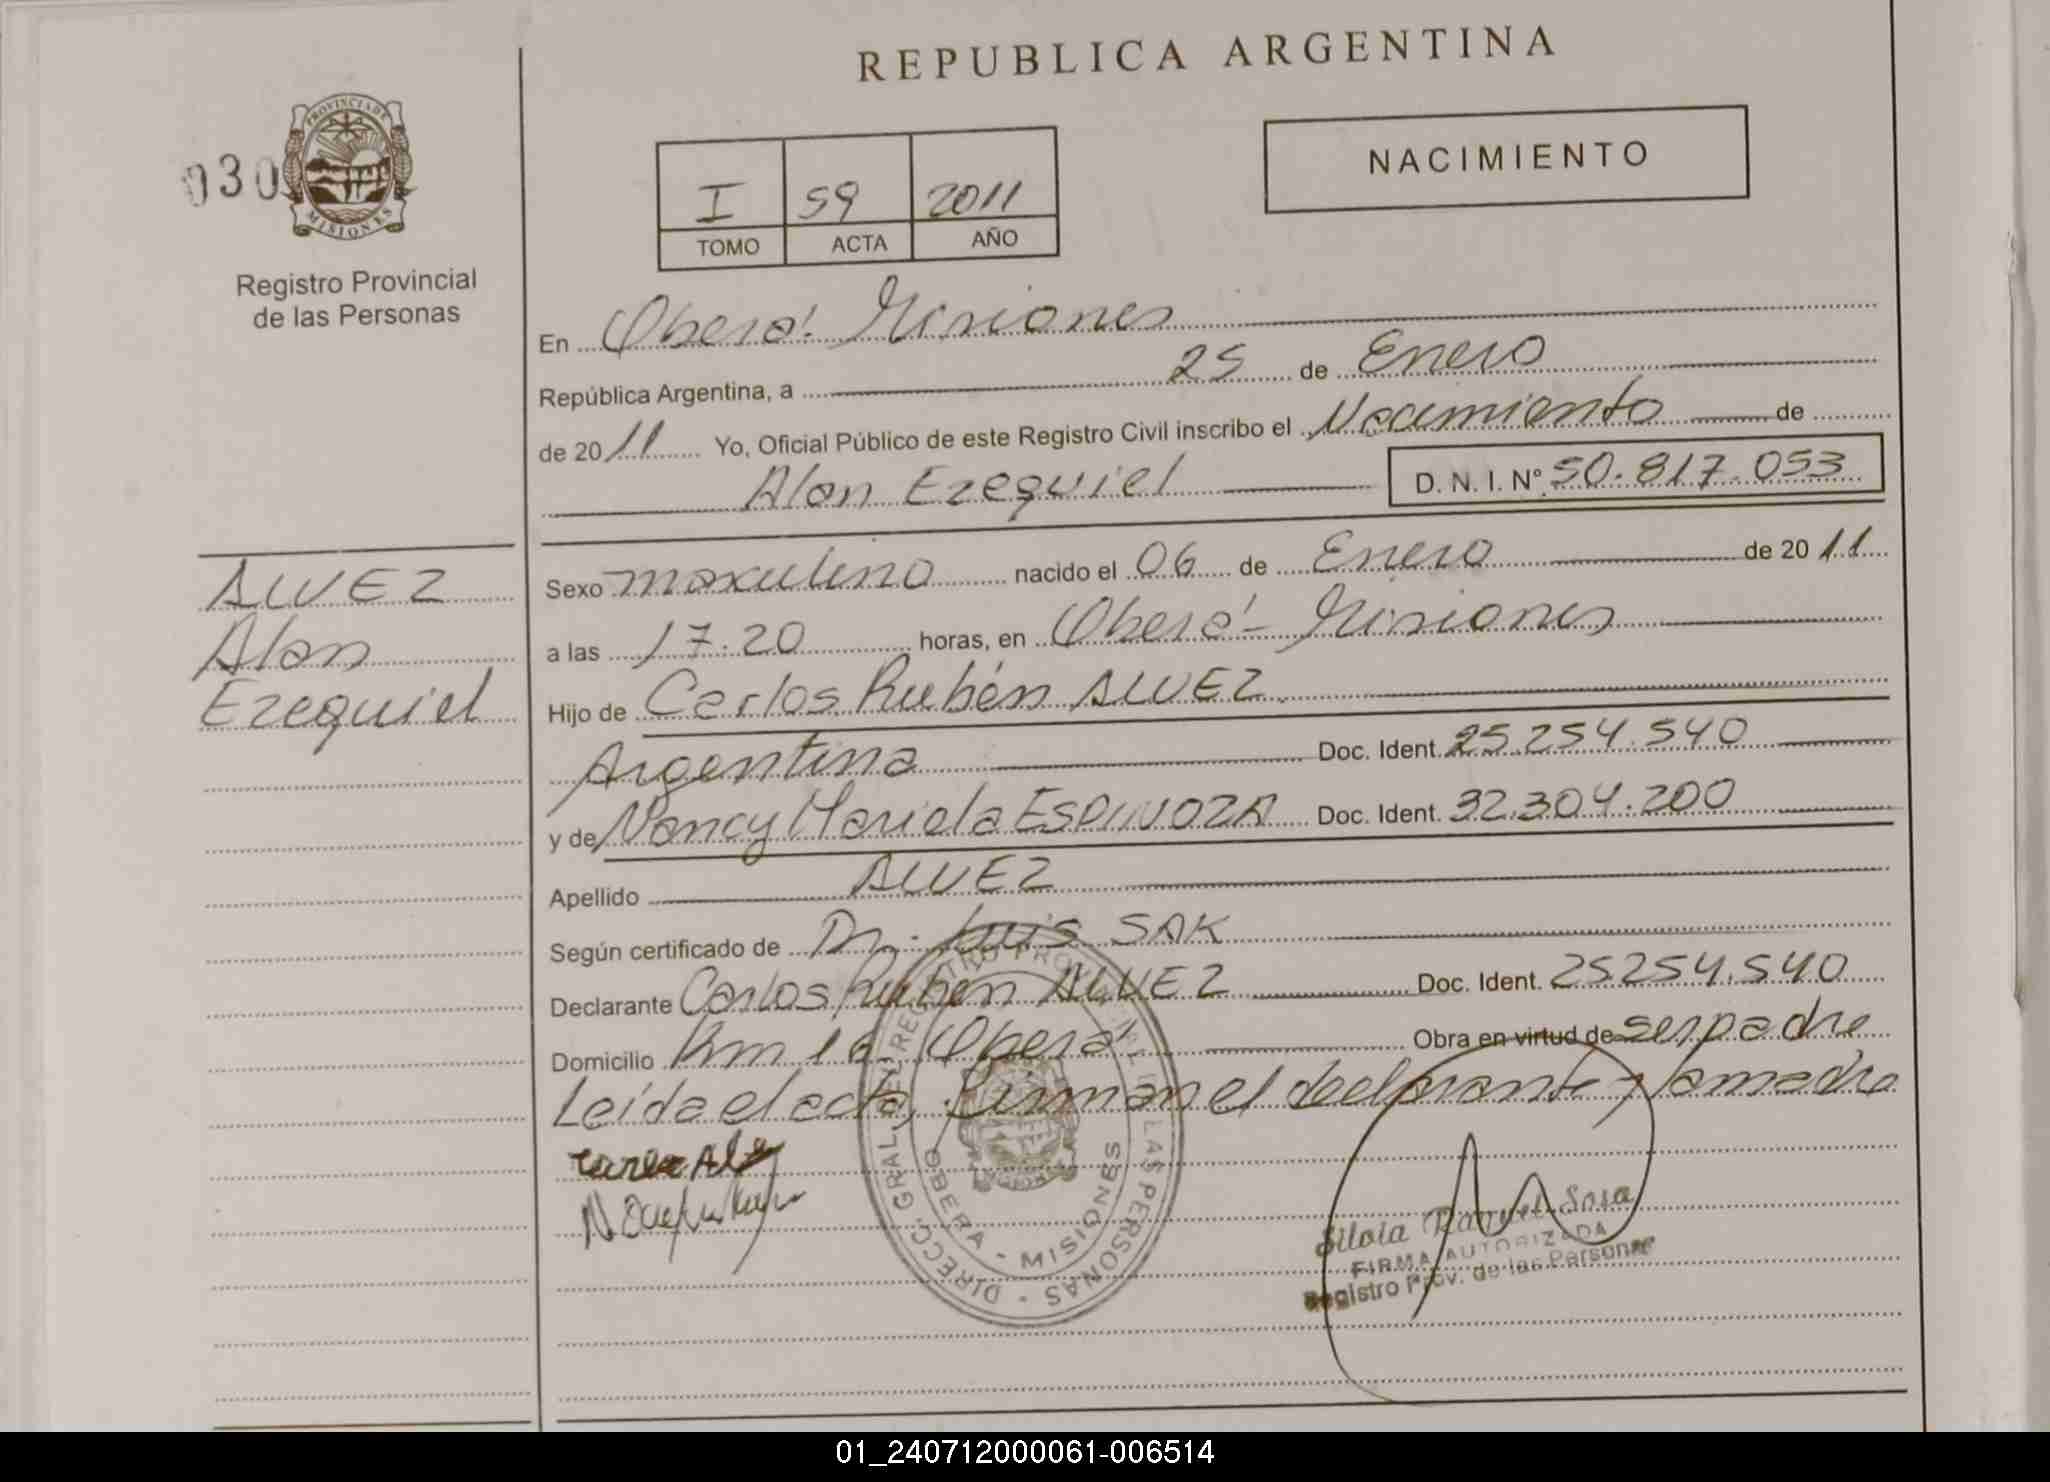 REPUBLICA ARGENTINA
PROVINCIA DE
MISIONES
030
Registro Provincial
de las Personas
NACIMIENTO
I 59 2011
TOMO ACTA AÑO
En Oberá. Misiones
República Argentina, a 25 de Enero
de 2011 Yo, Oficial Público de este Registro Civil inscribo el Nacimiento de
Alan Ezequiel D. N. I. Nº 50.817.053
ALVEZ
Alan
Ezequiel
Sexo masculino nacido el 06 de Enero de 2011
a las 17.20 horas, en Oberá - Misiones
Hijo de Carlos Rubén ALVEZ
Argentina Doc. Ident. 25.254.540
y de Nancy Mariela ESPINOZA Doc. Ident. 32.304.200
Apellido ALVEZ
Según certificado de Dr. Luis SAK
Declarante Carlos Rubén ALVEZ Doc. Ident. 25254.540
Domicilio Km 10 Oberá Obra en virtud de ser padre
Leída el acta, firman el declarante y la madre
DIRECC. GRAL. DEL REGISTRO PROVINCIAL DE LAS PERSONAS
OBERA - MISIONES
Silvia Raquel Sosa
FIRMA AUTORIZADA
Registro Prov. de las Personas
01_240712000061-006514